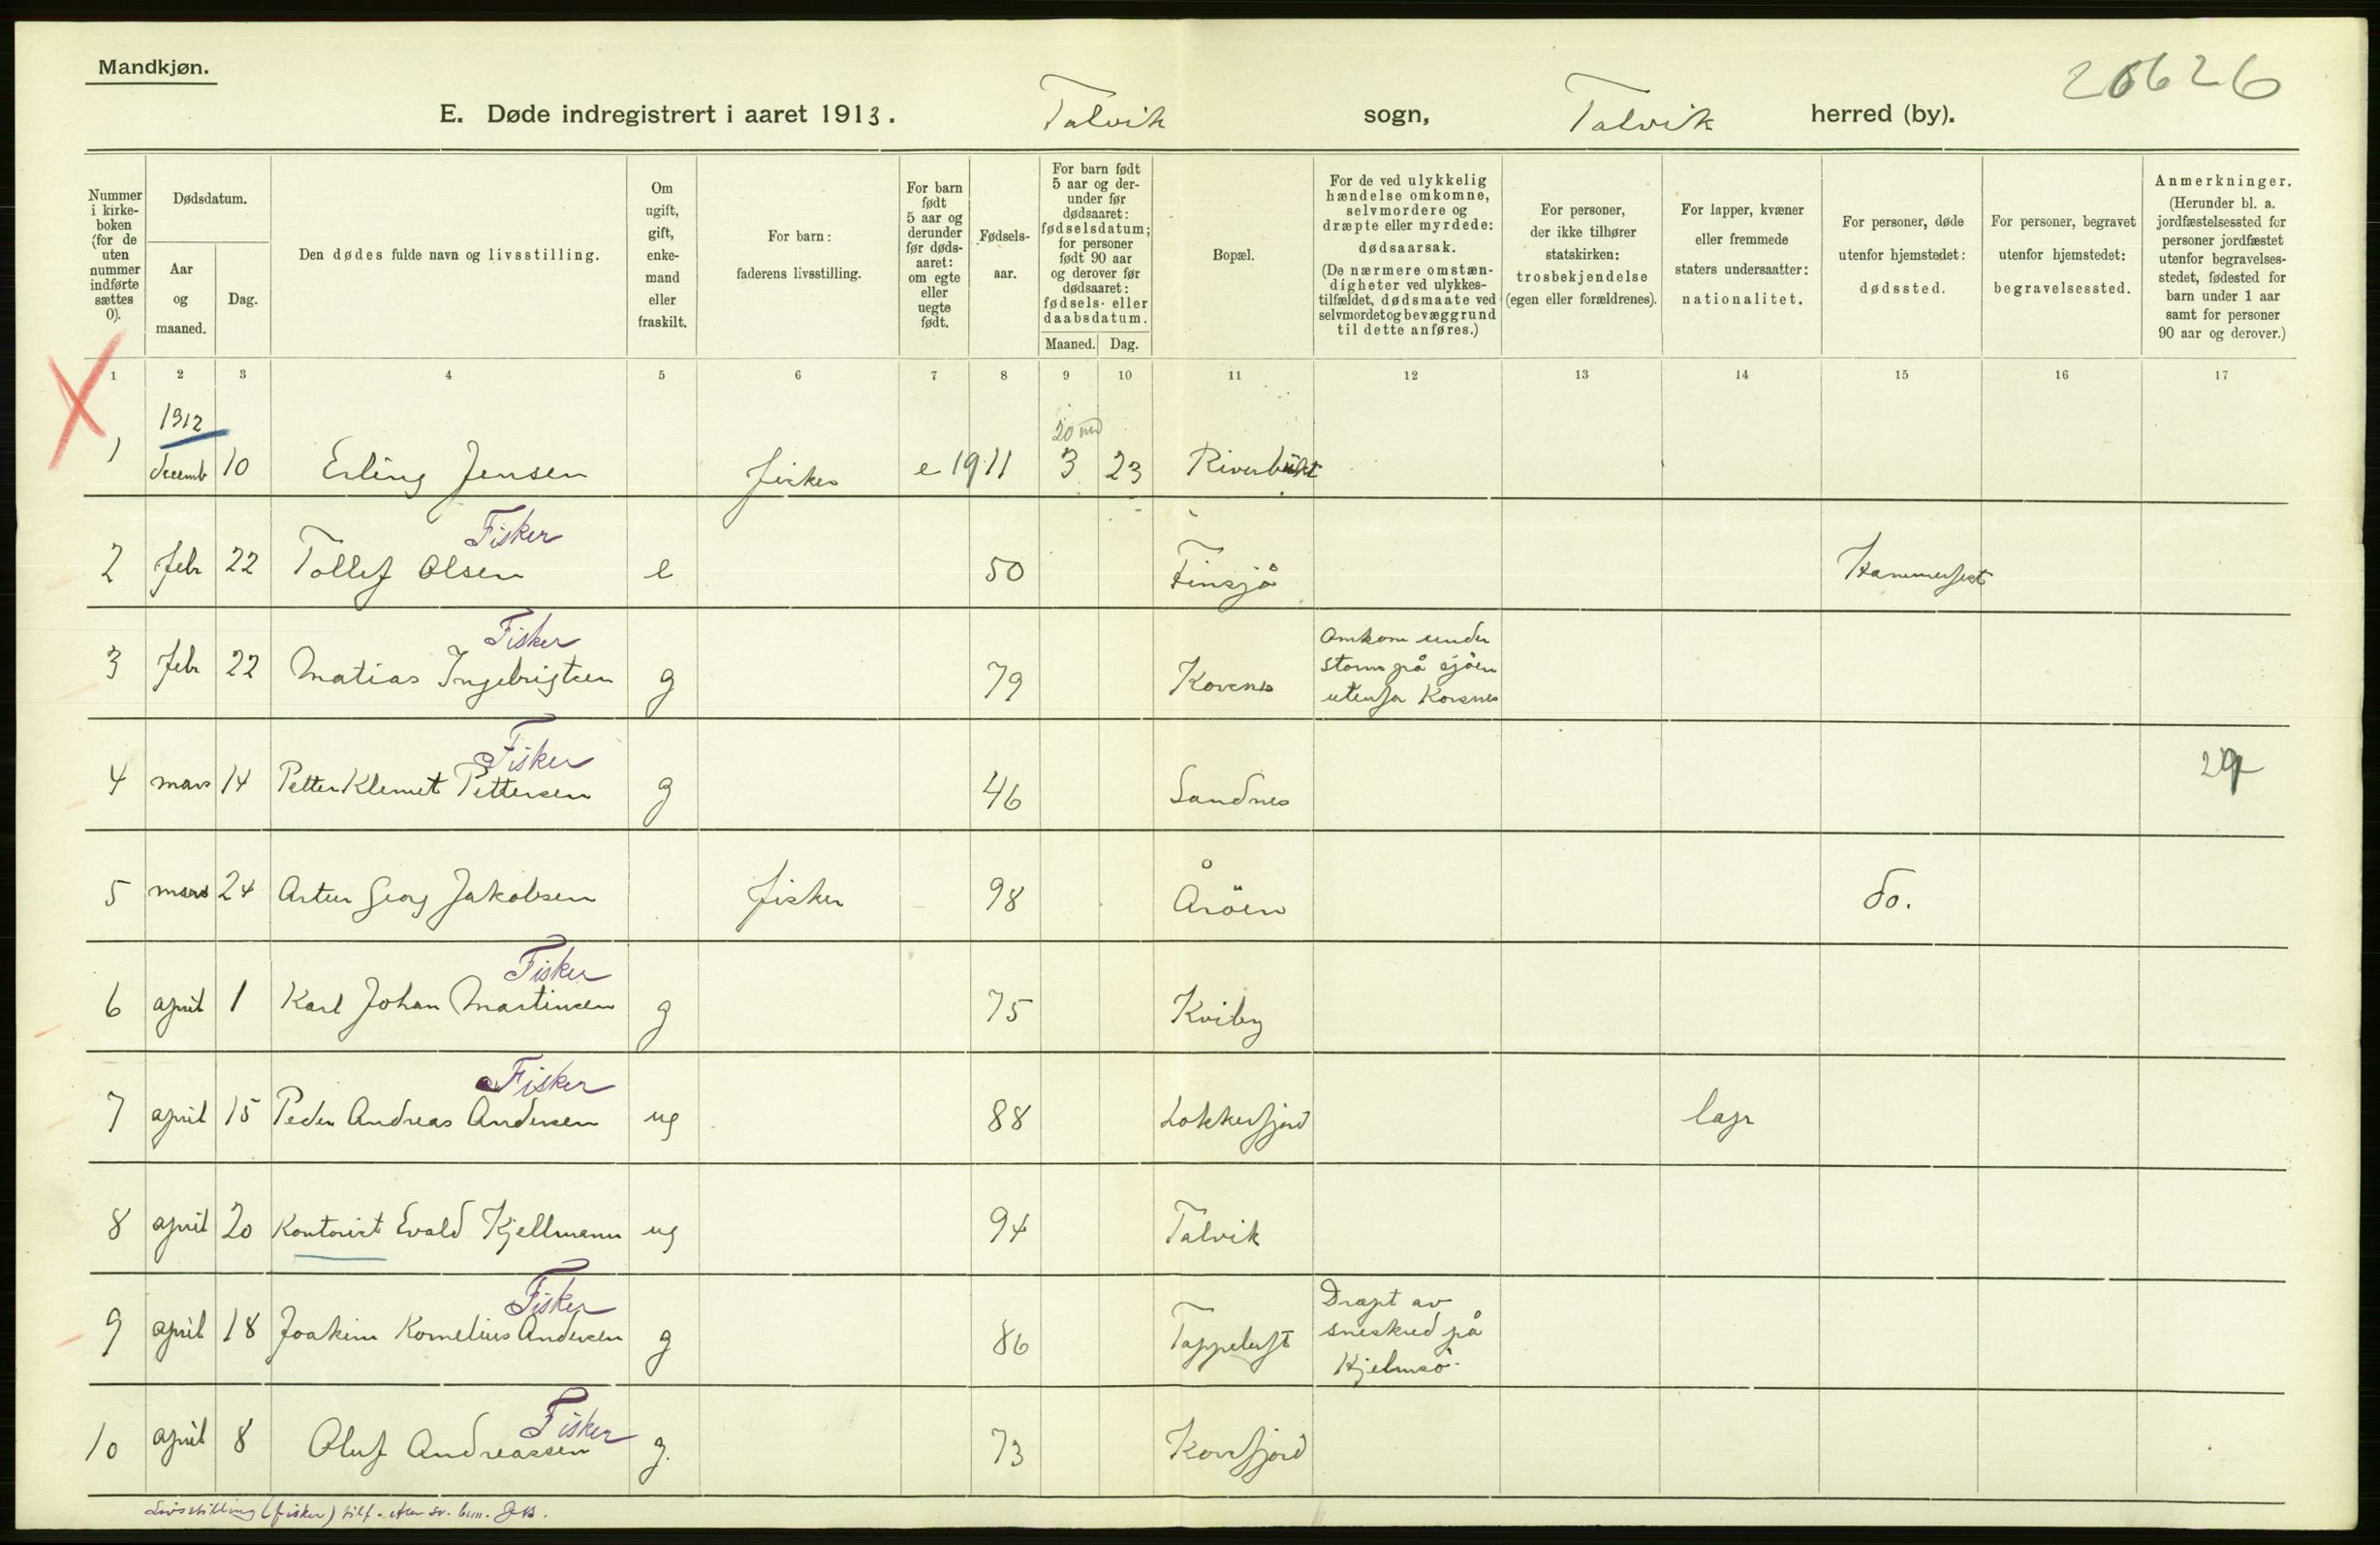 Mandkjøn.
20626
E. Døde indregistrert i aaret 1913. Talvik sogn, Talvik herred (by).
Nummer i kirkeboken (for de uten nummer indførte sættes 0).
Dødsdatum.
Aar og maaned.
Dag.
Den dødes fulde navn og livsstilling.
Om ugift, gift, enkemand eller fraskilt.
For barn: faderens livsstilling.
For barn født 5 aar og derunder før dødsaaret: om egte eller uegte født.
Fødselsaar.
For barn født 5 aar og derunder før dødsaaret: fødselsdatum; for personer født 90 aar og derover før dødsaaret: fødsels- eller daabsdatum.
Maaned. Dag.
Bopæl.
For de ved ulykkelig hændelse omkomne, selvmordere og dræpte eller myrdede: dødsaarsak. (De nærmere omstændigheter ved ulykkestilfældet, dødsmaate ved selvmordet og bevæggrund til dette anføres.)
For personer, der ikke tilhører statskirken: trosbekjendelse (egen eller forældrenes).
For lapper, kvæner eller fremmede staters undersaatter: nationalitet.
For personer, døde utenfor hjemstedet: dødssted.
For personer, begravet utenfor hjemstedet: begravelsessted.
Anmerkninger. (Herunder bl. a. jordfæstelsessted for personer jordfæstet utenfor begravelsesstedet, fødested for barn under 1 aar samt for personer 90 aar og derover.)
1 2 3 4 5 6 7 8 9 10 11 12 13 14 15 16 17
1912
20 md
1 decemb 10 Erling Jensen fisker e 1911 3 23 Riverbukt
Fisker
2 febr 22 Tollef Olsen e 50 Finsjå Hammerfest
Fisker
3 febr 22 Matias Ingebrigtsen g 79 Korsnes Omkom under
storm på sjöen
utenfor Korsnes
Fisker
4 mars 14 Petter Klemet Pettersen g 46 Sandnes 29
5 mars 24 Artur Georg Jakobsen fisker 98 Åröen do.
Fisker
6 april 1 Karl Johan Martinsen g 75 Kviby
Fisker
7 april 15 Peder Andreas Andersen ug 88 Lokkerfjord lapp
8 april 20 Kontorist Evald Kjellmann ug 94 Talvik
Fisker
9 april 18 Joakim Kornelius Andersen g 86 Tappeluft Dræpt av
sneskred på
Hjelmsö
Fisker
10 april 8 Oluf Andreassen g. 73 Korsfjord
Livsstilling (fisker) tilf. efter sv. bem.